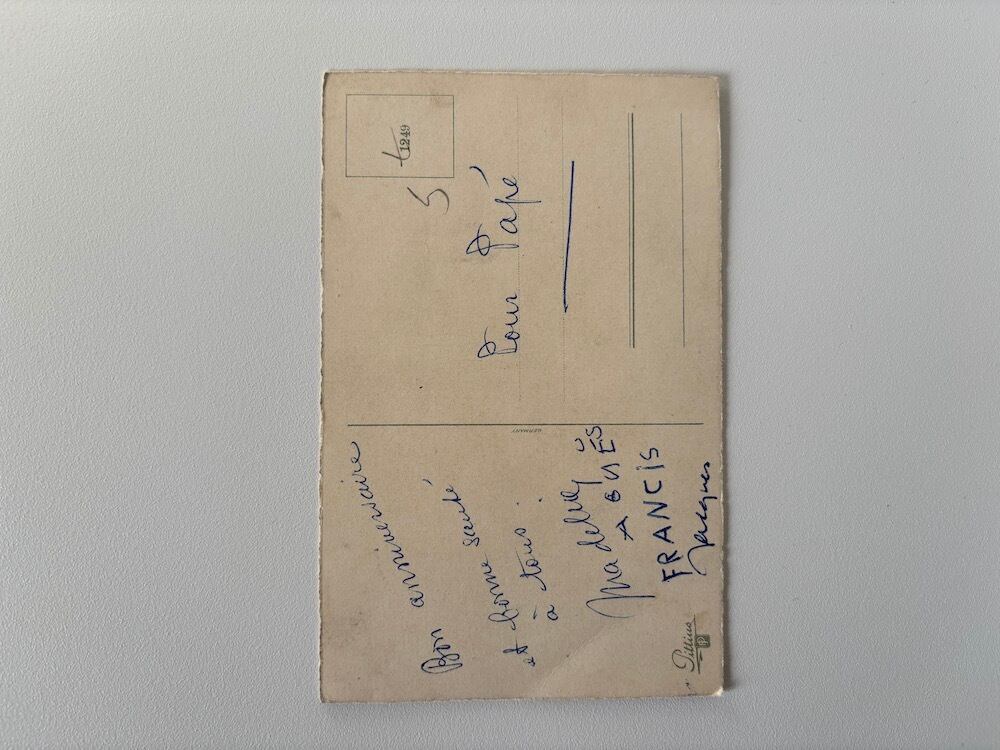 Bon anniversaire
et bonne santé
à tous.
AGNÈS
FRANCIS
Jacques
Pittius
GERMANY
1249
5
Pour Papé